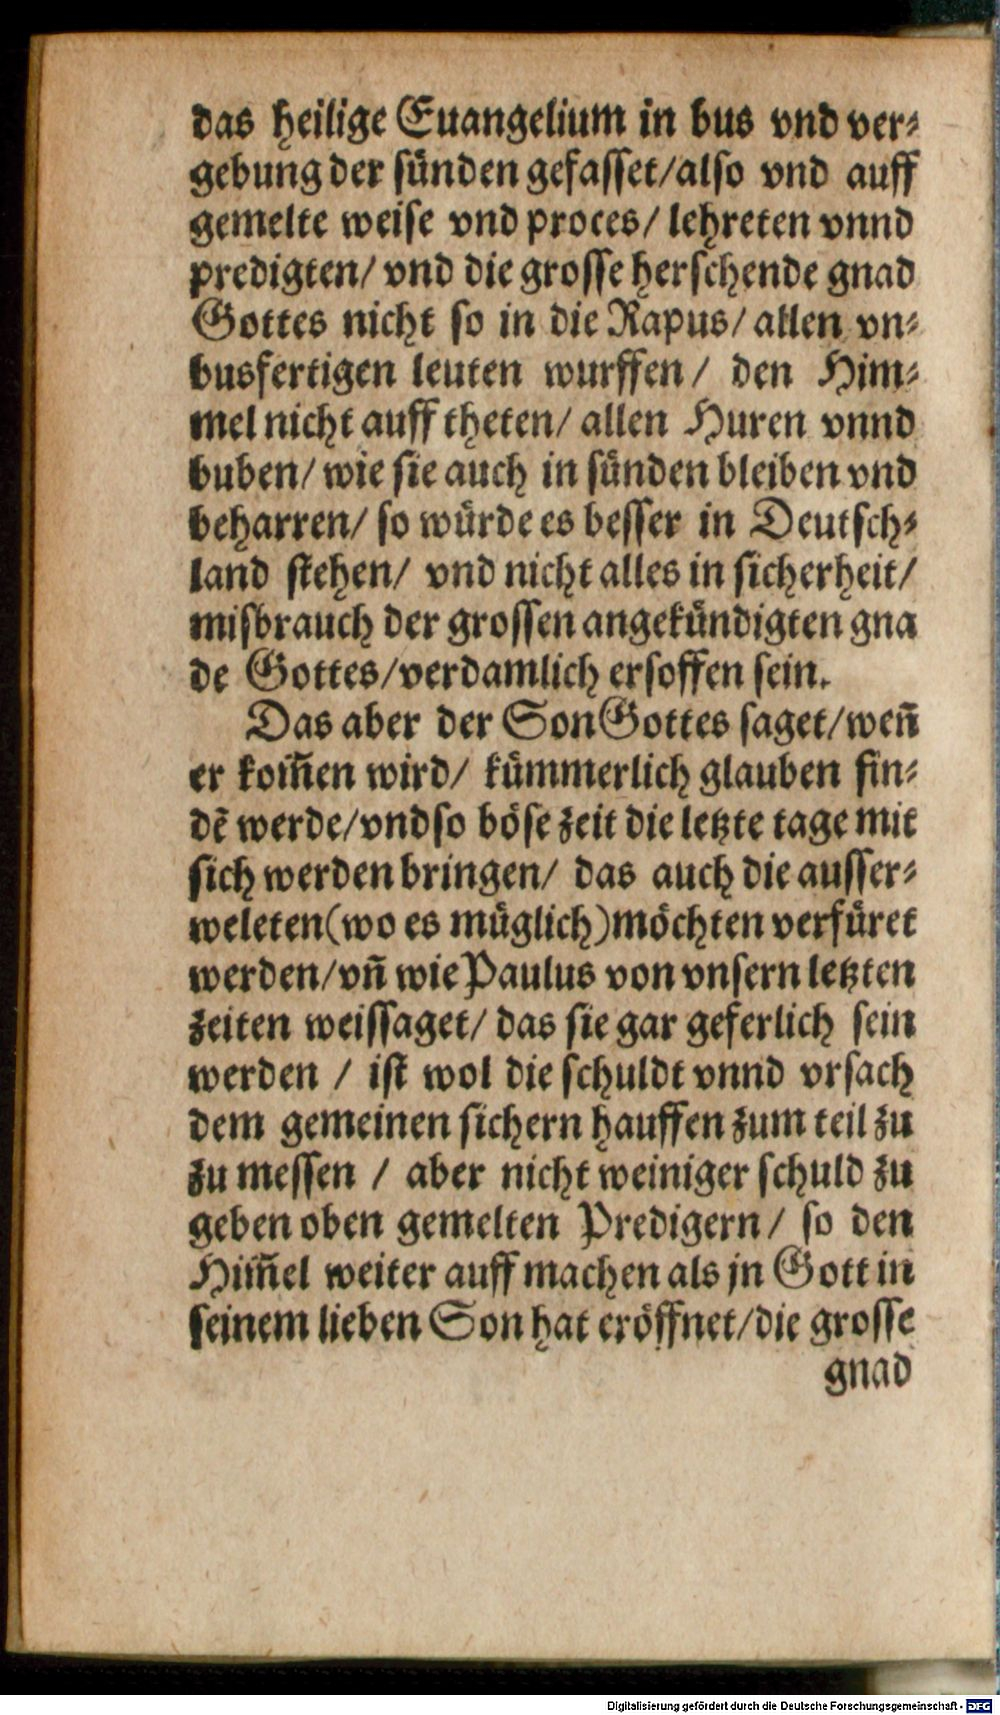 das heilige Euangelium in bus vnd ver⸗
gebung der sünden gefasset/also vnd auff
gemelte weise vnd proces/ lehreten vnnd
predigten/ vnd die grosse herschende gnad
Gottes nicht so in die Rapus/ allen vn⸗
busfertigen leuten wurffen/ den Him⸗
mel nicht auff theten/ allen Huren vnnd
buben/ wie sie auch in sünden bleiben vnd
beharren/ so würde es besser in Deutsch⸗
land stehen/ vnd nicht alles in sicherheit/
misbrauch der grossen angekündigten gna
de Gottes/verdamlich ersoffen sein.
Das aber der Son Gottes saget/wen̄
er kom̄en wird/ kümmerlich glauben fin⸗
dē werde/vnd so böse zeit die letzte tage mit
sich werden bringen/ das auch die ausser⸗
weleten(wo es müglich)möchten verfüret
werden/vn̄ wie Paulus von vnsern letzten
zeiten weissaget/ das sie gar geferlich sein
werden / ist wol die schuldt vnnd vrsach
dem gemeinen sichern hauffen zum teil zu
zu messen / aber nicht weiniger schuld zu
geben oben gemelten Predigern/ so den
Him̄el weiter auff machen als jn Gott in
seinem lieben Son hat eröffnet/die grosse
gnad
Digitalisierung gefördert durch die Deutsche Forschungsgemeinschaft - DFG